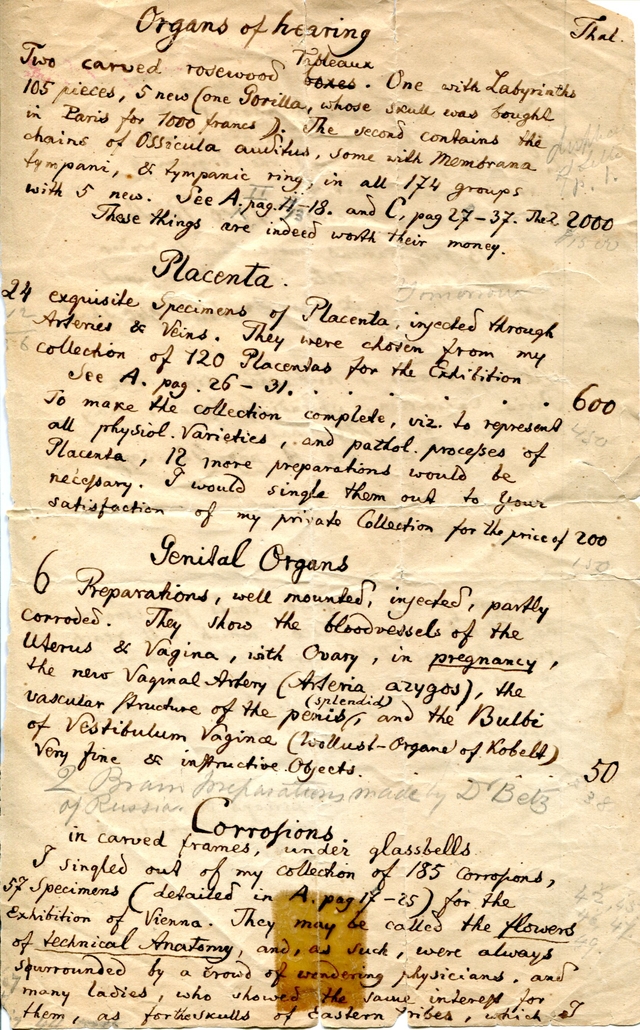 Organs of hearing
Thal.
Two carved rosewood boxes Tableaux. One with Labyrinths
105 pieces, 5 new (one Gorilla, whose skull was bought
in Paris for 1000 francs). The second contains the
chains of Ossicula auditus, some with Membrana
tympani, & tympanic ring, in all 174 groups
with 5 new. See A. pag. 11-18. and C, pag 27-37. 2000
These things are indeed worth their money.
Placenta.
24 exquisite Specimens of Placenta, injected through
Arteries & Veins. They were chosen from my
collection of 120 Placentas for the Exhibition
See A. pag. 26-31. . . . . . 600
To make the collection complete, viz. to represent
all physiol. Varieties, and pathol. processes of
Placenta, 12 more preparations would be
necessary. I would single them out to Your
satisfaction of my private Collection for the price of 200
150
Genital Organs
6 Preparations, well mounted, injected, partly
corroded. They show the bloodvessels of the
Uterus & Vagina, with Ovary, in pregnancy,
the new Vaginal Artery (Arteria azygos), the
vascular structure of the penis (splendid), and the Bulbi
of Vestibulum Vaginæ (Wollust-Organe of Kobelt)
Very fine & instructive Objects. . . . 50
38
2 Brain preparations made by Dr Betz
of Russia.
Corrosions.
in carved frames, under glassbells
I singled out of my collection of 185 corrosions,
57 Specimens (detailed in A. pag 17-25) for the
Exhibition of Vienna. They may be called the flowers
of technical Anatomy, and, as such, were always
surrounded by a croud of wondering physicians, and
many ladies, who showed the same interest for
them, as for the skulls of Eastern Tribes, which I